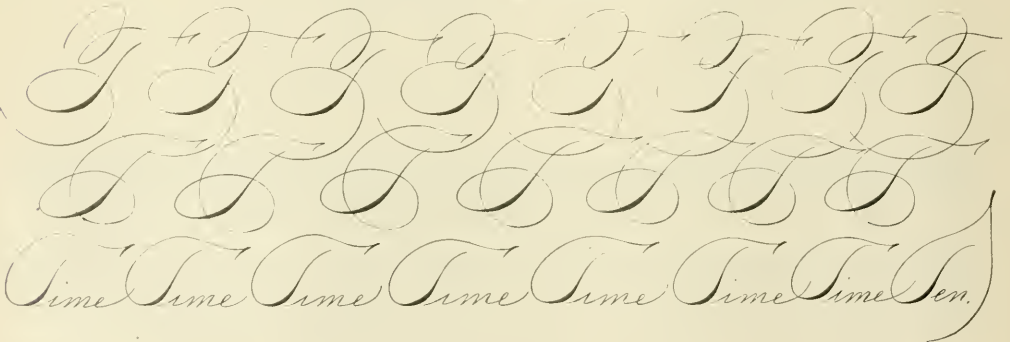 T T T T T T T T
T T T T T T T
Time Time Time Time Time Time Time Ten.